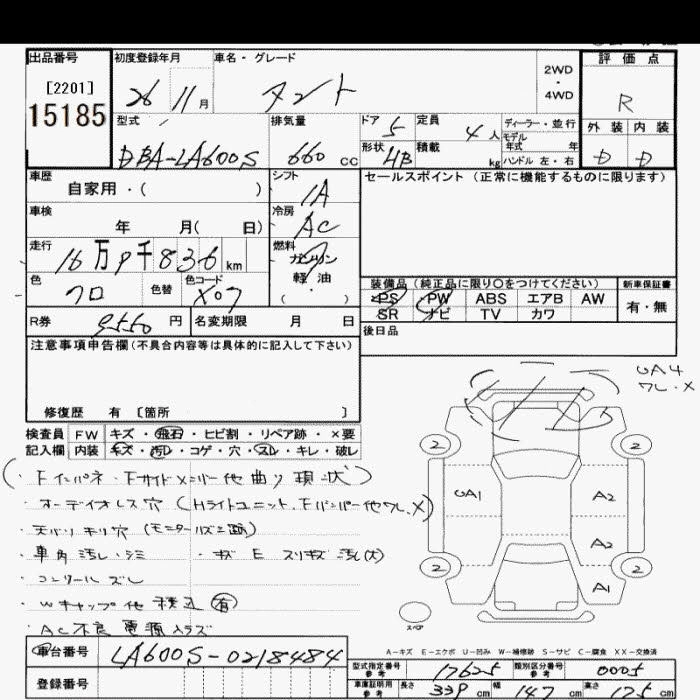 出品番号 初度登録年月 車名・グレード 2WD・4WD 評価点
[2201] 26 11月 タント R
15185
型式 排気量 ドア 5 定員 4人 ディーラー・並行 外装 内装
モデル年式 年
DBA-LA600S 660cc 形状 HB 積載 kg ハンドル 左・右 D D
車歴 シフト セールスポイント(正常に機能するものに限ります)
自家用・( ) IA
車検 冷房
年 月( 日) AC
走行 燃料
16万9千836km ガソリン
軽油
色 色替 色コード ( ・ )
クロ X07
装備品(純正品に限り○をつけてください) 新車保証書
PS PW ABS エアB AW 有・無
SR ナビ TV カワ
R券 9550円 名変期限 月 日
後日品
注意事項申告欄(不具合内容等は具体的に記入して下さい)
UA4
ワレ・X
修復歴 有 [箇所 ]
検査員 FW キズ・飛石・ヒビ割・リペア跡・×要
記入欄 内装 キズ・汚レ・コゲ・穴・スレ・キレ・破レ
・Fインパネ・Fサイドメンバー他曲り現状
・オーディオレス穴(Hライトユニット、Fバンパー他ワレ、X)
・天バリキリ穴
・車内汚レ・シミ ・キズ E スリキズ 汚(大)
・コンソールズレ
・Wキャップ他積込(有)
・AC不良 電源入ラズ
2 2
UA1 A2
A2
2 2
A1
スペア
A-キズ E-エクボ U-凹み W-補修跡 S-サビ C-腐食 XX-交換済
車台番号 LA600S-0218484
登録番号
型式指定番号 参考 17625 類別区分番号 参考 0005
車庫証明用 参考 長さ 339cm 幅 147cm 高さ 175cm